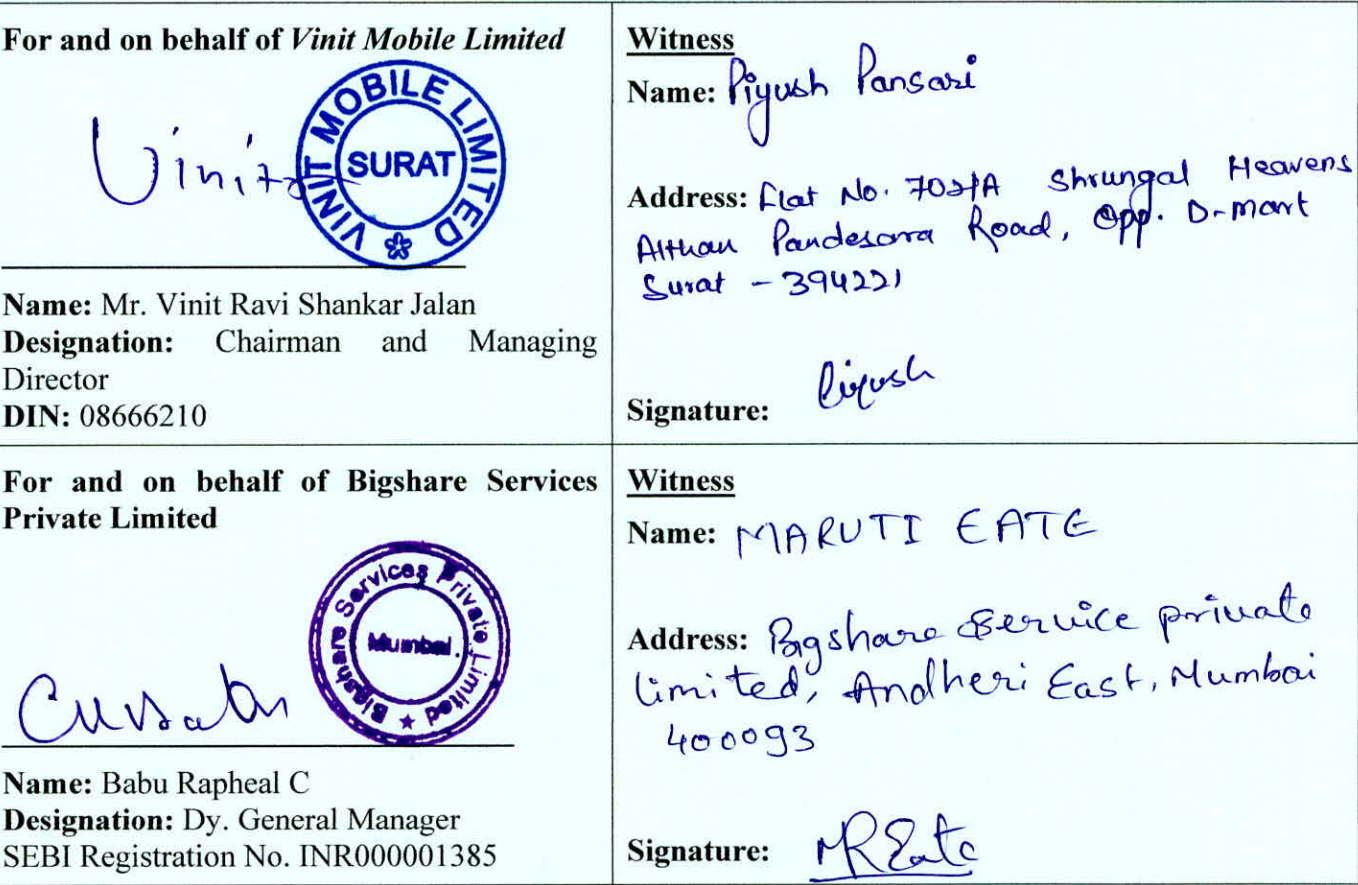 For and on behalf of Vinit Mobile Limited
Vinit
VINIT MOBILE LIMITED
SURAT
Name: Mr. Vinit Ravi Shankar Jalan
Designation: Chairman and Managing
Director
DIN: 08666210
Witness
Name: Piyush Pansari
Address: Flat No. 702/A Shrungal Heavens
Althan Pandesara Road, Opp. D-mart
Surat - 394221
Signature: Piyush
For and on behalf of Bigshare Services
Private Limited
Bigshare Services Private Limited
Mumbai.
Name: Babu Rapheal C
Designation: Dy. General Manager
SEBI Registration No. INR000001385
Witness
Name: MARUTI EATE
Address: Bigshare Service private
limited, Andheri East, Mumbai
400093
Signature: MREate